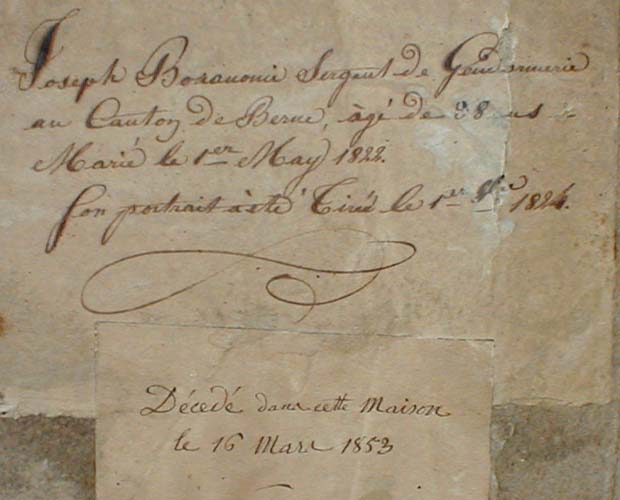 Joseph Boranomi Sergent de Gendarmerie
au Canton de Berne, âgé de 38 ans
Marié le 1er May 1822.
son portrait à eté Tiré le 1er 1824.
Décedé dans cette Maison
le 16 Mars 1853